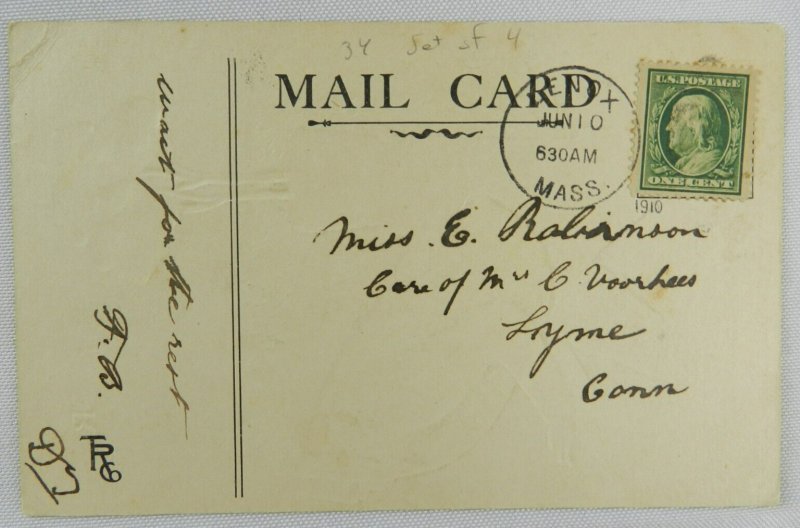 34 Set of 4
MAIL CARD
JUN 10
630AM
MASS.
1910
U.S. POSTAGE
ONE CENT
Miss. E. Robinson
Care of Mrs C. Voorhees
Lyme
Conn
wait for the rest
F. B.